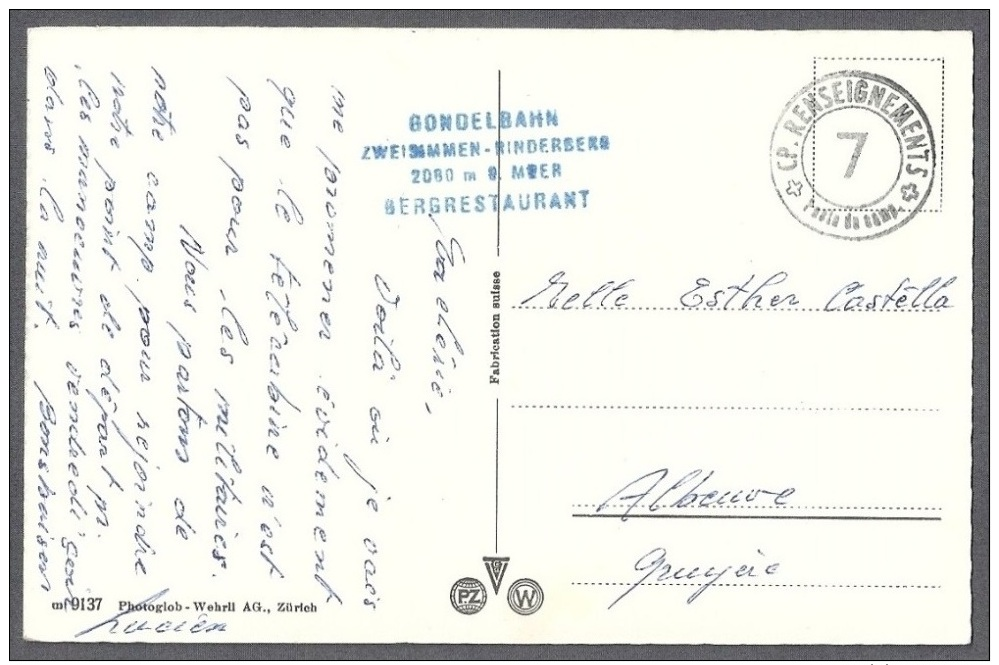 Ma chérie,
Voilà où je vais
me promener évidement
que le télécabine n'est
pas pour les militaires.
Nous partons de
notre camp pour rejoindre
notre point de départ
les manoeuvres vendredi soir
dans la nuit. Bons baisers
Lucien
GONDELBAHN
ZWEISIMMEN-RINDERBERG
2080 m ü. MEER
BERGRESTAURANT
CP. RENSEIGNEMENTS
7
Poste de camp.
Melle Esther Castella
Albeuve
Gruyère
Fabrication suisse
PZ
W
mf 9137 Photoglob-Wehrli AG., Zürich